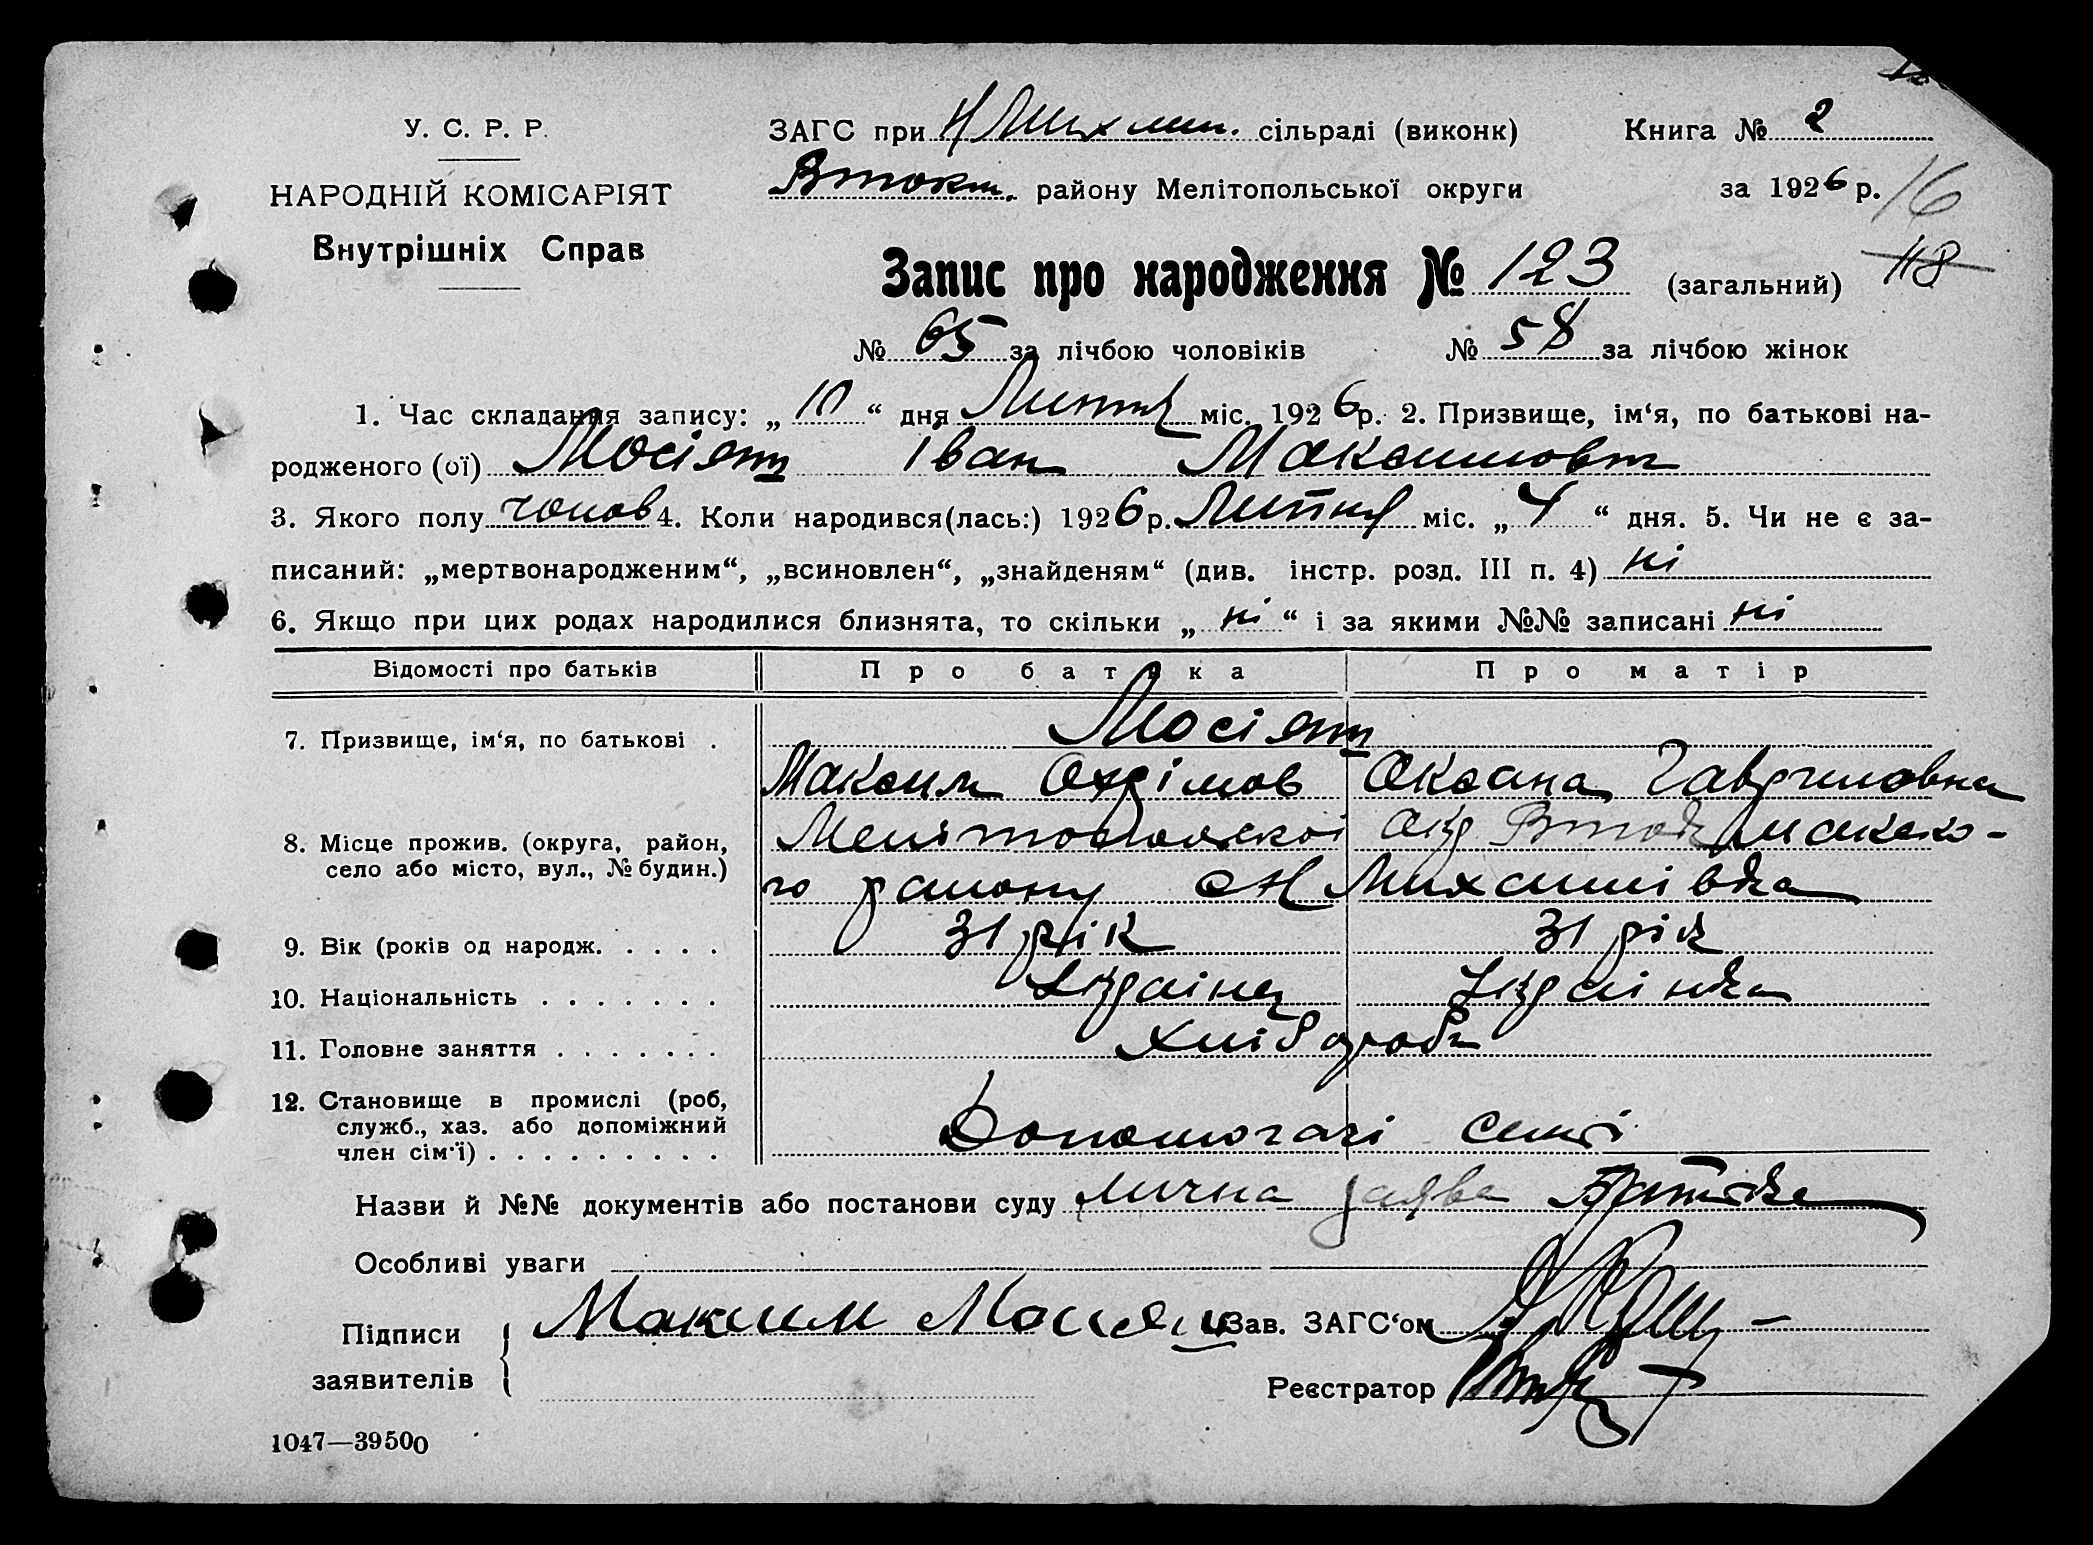 У. С. Р. Р.
НАРОДНІЙ КОМІСАРІЯТ
Внутрішніх Справ
ЗАГС при Н Михайл. сільраді (виконк) Книга № 2
Втокм. району Мелітопольської округи за 1926 р. 16
Запис про народження № 123 (загальний) 118
№ 65 за лічбою чоловіків № 58 за лічбою жінок
1. Час складання запису: „ 10 “ дня Липня міс. 1926 р. 2. Призвище, ім‘я, по батькові на-
родженого (ої) Мосіяш Іван Максимович
3. Якого полу чолов 4. Коли народився(лась:) 1926 р. Липня міс. „ 4 “ дня. 5. Чи не є за-
писаний: „мертвонародженим“, „всиновлен“, „знайденям“ (див. інстр. розд. III п. 4) ні
6. Якщо при цих родах народилися близнята, то скільки „ ні “ і за якими №№ записані ні
Відомості про батьків Про батька Про матір
7. Призвище, ім‘я, по батькові . Мосіяш
Максим Охрімов Оксана Гавриловна
8. Місце прожив. (округа, район, Мелітопольскої окр
село або місто, вул., № будин.) го району с Н Михайлівка
9. Вік (років од народж. . . . . 31 рік 31 рік
10. Національність . . . . . . . Українец Українка
11. Головне заняття . . . . . . . Хлібороби
12. Становище в промислі (роб,
служб., хаз. або допоміжний Допомогачі семʼї
член сім‘ї) . . . . . . . . .
Назви й №№ документів або постанови суду лична заява Батька
Особливі уваги
Підписи Максим Мосияш Зав. ЗАГС‘ом
заявителів Реєстратор
1047—39500